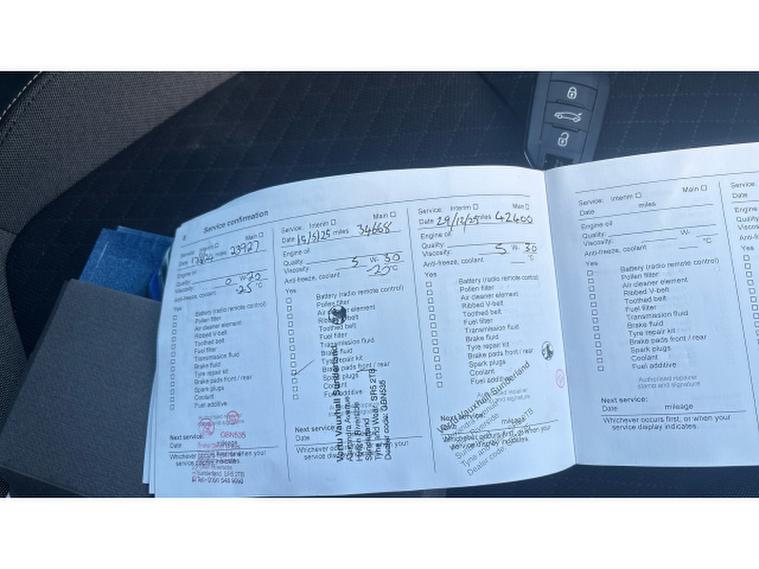 8 Service confirmation
Service: Interim ☐ Main ☐
Date miles 23927
Engine oil
Quality:
Viscosity: 0 W-20
Anti-freeze, coolant -25 °C
Yes
Battery (radio remote control)
Pollen filter
Air cleaner element
Ribbed V-belt
Toothed belt
Fuel filter
Transmission fluid
Brake fluid
Tyre repair kit
Brake pads front / rear
Spark plugs
Coolant
Fuel additive
GBN535
Next service:
Date mileage
Whichever occurs first, or when your
service display indicates.
Sunderland SR5 2TB
Service: Interim ☐ Main ☐
Date 15/5/25 miles 34668
Engine oil
Quality:
Viscosity: 5 W- 30
Anti-freeze, coolant -25°C
Yes
Battery (radio remote control)
Pollen filter
Air element
Ribbed belt
Toothed belt
Fuel filter
Transmission fluid
Brake fluid
Tyre repair kit
Brake pads front / rear
Spark plugs
Coolant
Fuel additive
Vertu Vauxhall Sunderland
Sunderland
Tyne and Wear SR5 2TB
Dealer code: GBN535
Next service:
Date
Whichever occurs first, or when your
service display indicates.
Service: Interim ☐ Main ☐
Date 29/12/25 miles 42400
Engine oil
Quality:
Viscosity: 5 W- 30
Anti-freeze, coolant °C
Yes
Battery (radio remote control)
Pollen filter
Air cleaner element
Ribbed V-belt
Toothed belt
Fuel filter
Transmission fluid
Brake fluid
Tyre repair kit
Brake pads front / rear
Spark plugs
Coolant
Fuel additive
Vertu Vauxhall Sunderland
Dealer code:
Next service:
mileage
Whichever occurs first, or when your
service display indicates.
Service: Interim ☐ Main ☐
Date miles
Engine oil
Quality:
Viscosity: W-
Anti-freeze, coolant °C
Yes
Battery (radio remote control)
Pollen filter
Air cleaner element
Ribbed V-belt
Toothed belt
Fuel filter
Transmission fluid
Brake fluid
Tyre repair kit
Brake pads front / rear
Spark plugs
Coolant
Fuel additive
Authorised repairer
stamp and signature
Next service:
Date mileage
Whichever occurs first, or when your
service display indicates.
Service:
Date
Engine
Quality
Yes